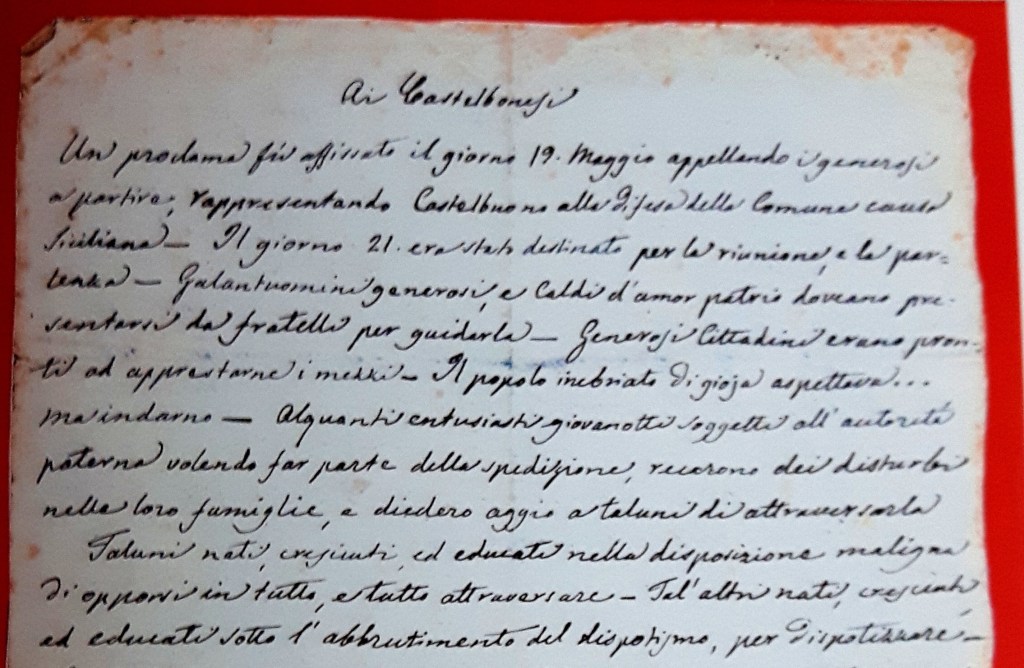 Ai Castelbonesi
Un proclama fù affissato il giorno 19. Maggio appellando i generosi
a partire, rappresentando Castelbuono alla difesa della Comune causa
Siciliana — Il giorno 21. era stato destinato per la riunione, e la par=
tenza — Galantuomini generosi, e Caldi d'amor patrio doveano pre-
sentarsi da fratelli per guidarla — Generosi Cittadini erano pron-
ti ad apprestarne i mezzi — Il popolo inebriato di gioja aspettava...
ma indarno — Alquanti entusiasti giovanotti soggetti all'autorità
paterna volendo far parte della spedizione, recarono dei disturbi
nelle loro famiglie, e diedero aggio a taluni di attraversarla
Taluni nati, cresciuti, ed educati nella disposizione maligna
di opporsi in tutto, e tutto attraversare — Tal'altri nati, cresciuti
ed educati sotto l'abbrutimento del dispotismo, per dispotizzare —